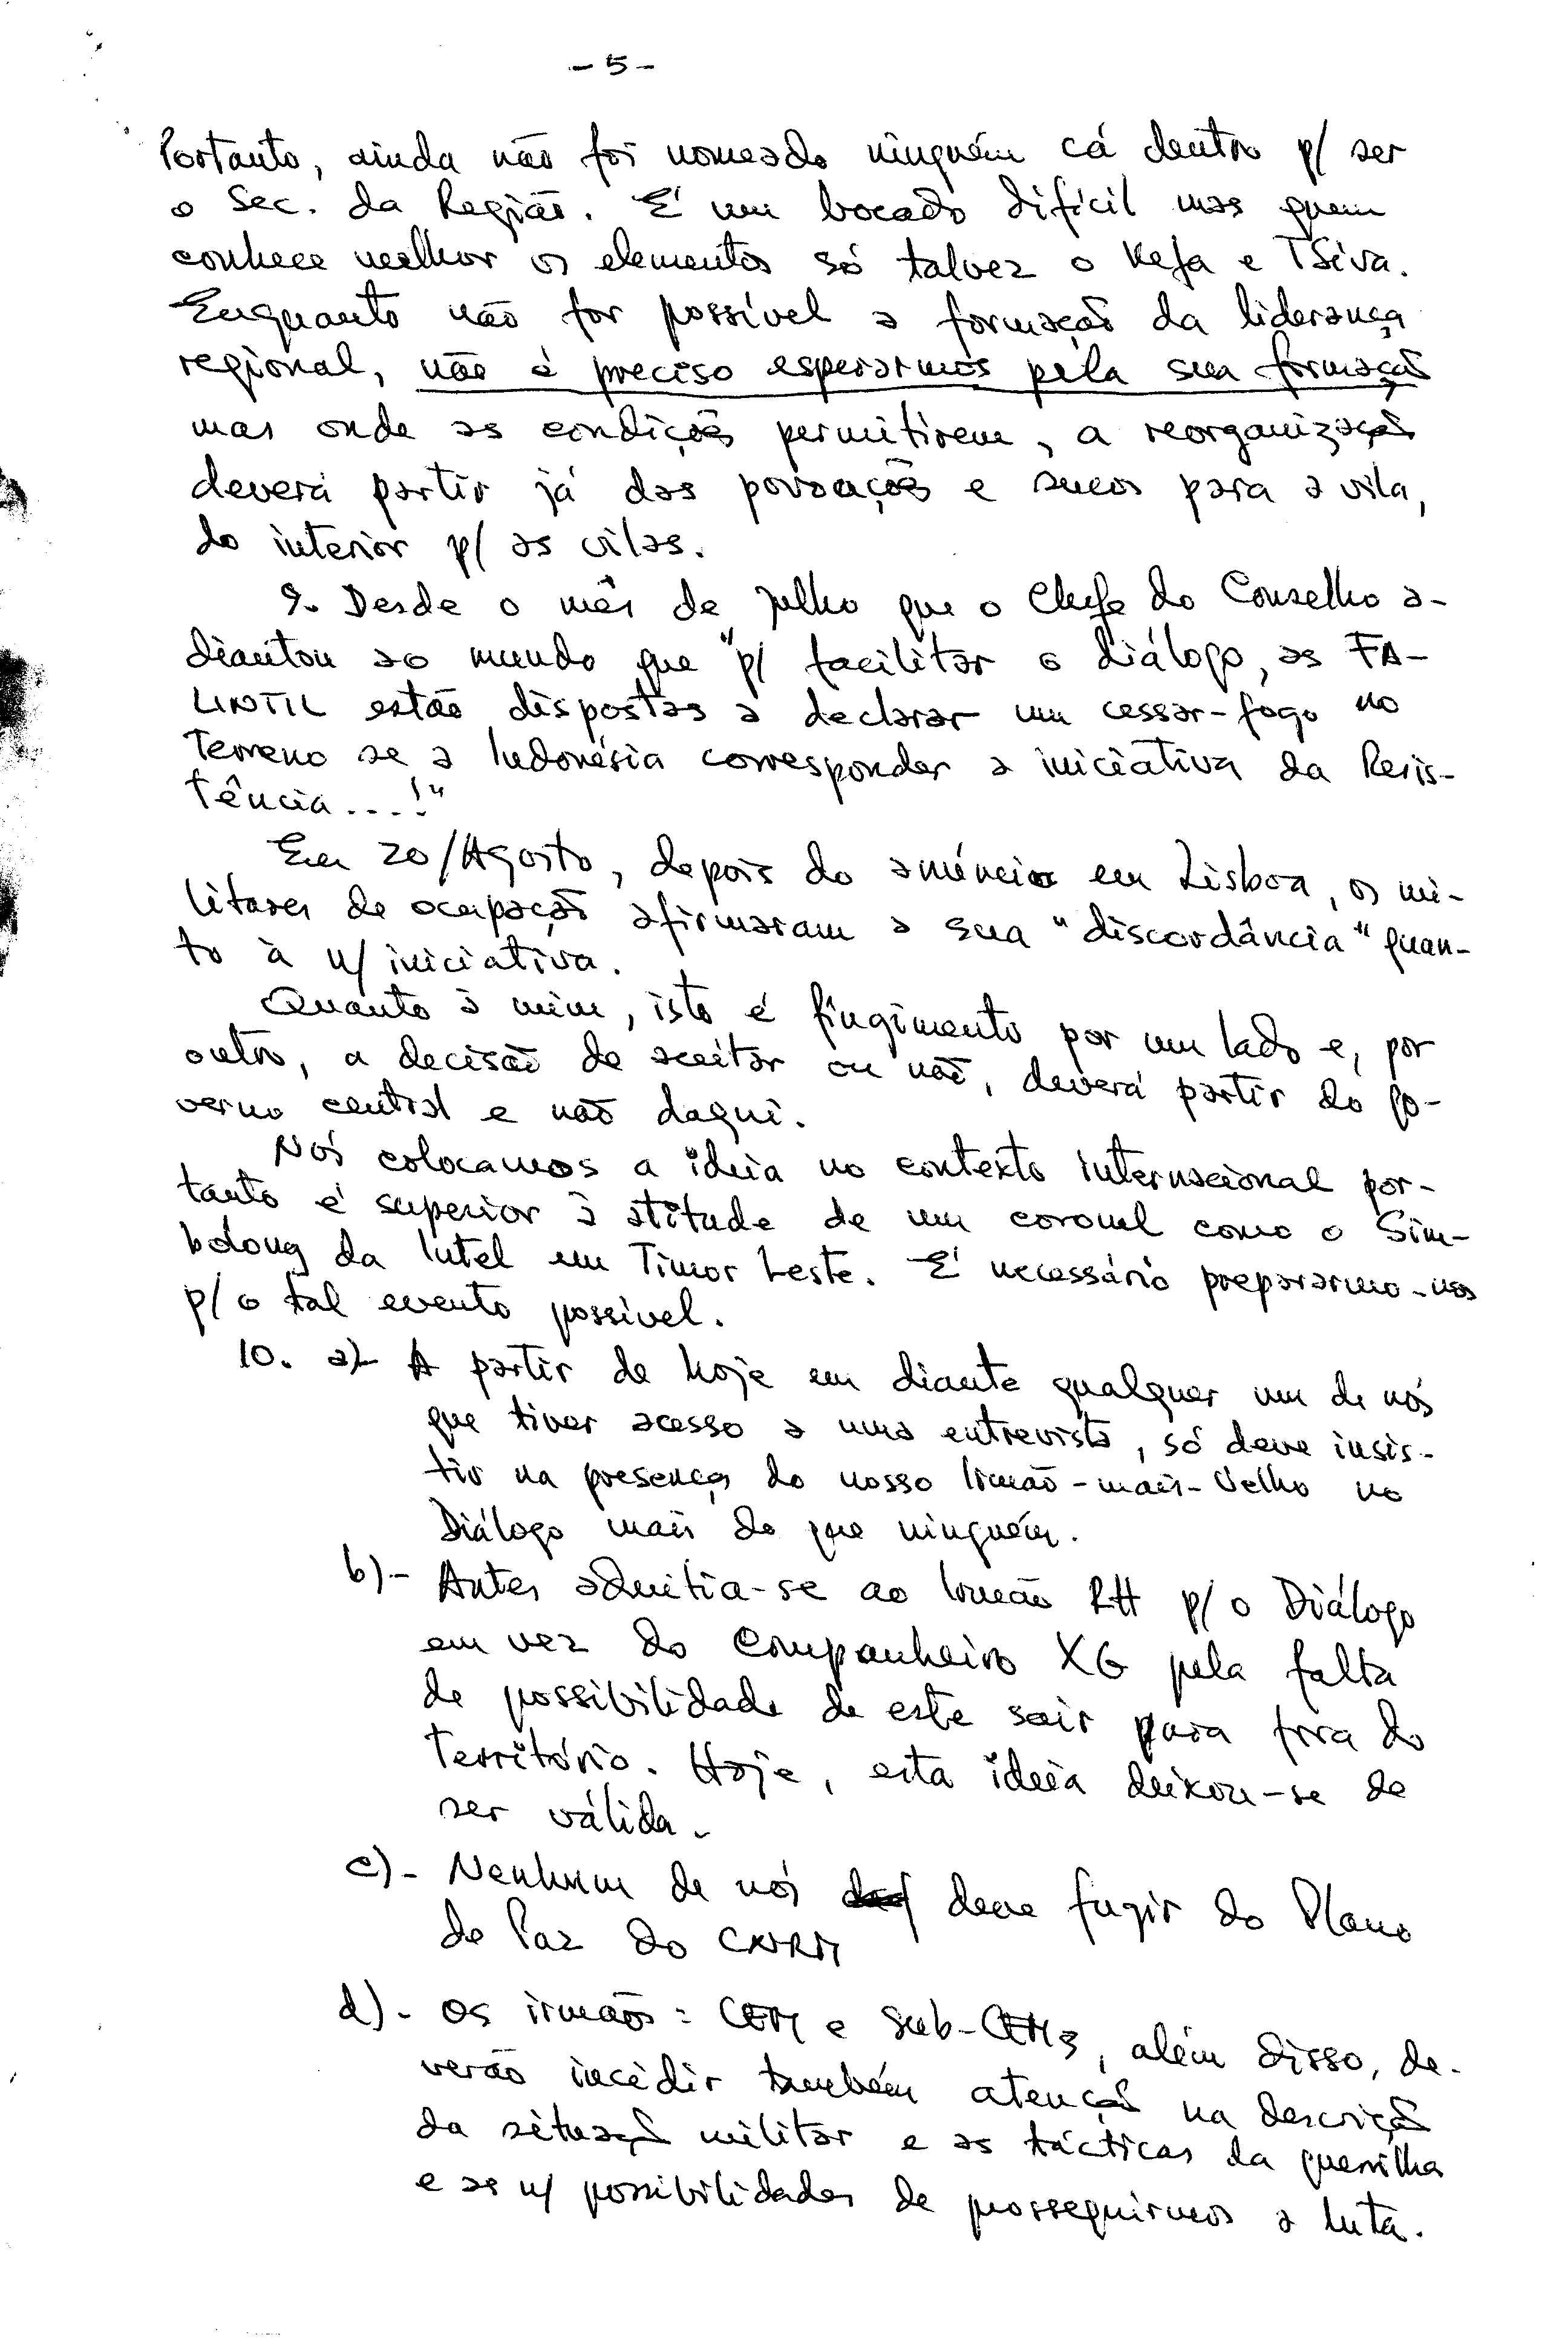 - 5 -
Portanto, ainda não foi nomeado ninguém cá dentro p/ ser
o Sec. da Região. É um bocado difícil mas quem
conhece melhor os elementos só talvez o Kefa e TSiva.
Enquanto não for possível a formação da liderança
regional, não é preciso esperarmos pela sua formação
mas onde as condições permitirem, a reorganização
deverá partir já das povoações e sucos para a vila,
do interior p/ as vilas.
9. Desde o mês de Julho que o Chefe do Conselho a-
diantou ao mundo que "p/ facilitar o diálogo, as FA-
LINTIL estão dispostas a declarar um cessar-fogo no
Terreno se a Indonésia corresponder a iniciativa da Resis-
tência....!"
Em 20/Agosto, depois do anúncio em Lisboa, os mi-
litares de ocupação afirmaram a sua "discordância" quan-
to à n/ iniciativa.
Quanto à mim, isto é fingimento por um lado e, por
outro, a decisão de aceitar ou não, deverá partir do go-
verno central e não daqui.
Nós colocamos a ideia no contexto internacional por-
tanto é superior à atitude de um coronel como o Sim-
bolong da Intel em Timor Leste. É necessário prepararmo-nos
p/ o tal evento possível.
10. a)- A partir de hoje em diante qualquer um de nós
que tiver acesso a uma entrevista, só deve insis-
tir na presença do nosso Irmão-mais-Velho no
Diálogo mais do que ninguém.
b)- Antes admitia-se ao Irmão RH p/ o Diálogo
em vez do Companheiro XG pela falta
de possibilidade de este sair para fora do
Território. Hoje, esta ideia deixou-se de
ser válida.
c)- Nenhum de nós deve fugir do Plano
de Paz do CNRM
d)- Os irmãos: CEM e Sub-CEMs, além disso, de-
verão incidir também atenção na descrição
da situação militar e as tácticas da guerrilha
e as n/ possibilidades de prosseguirmos a luta.